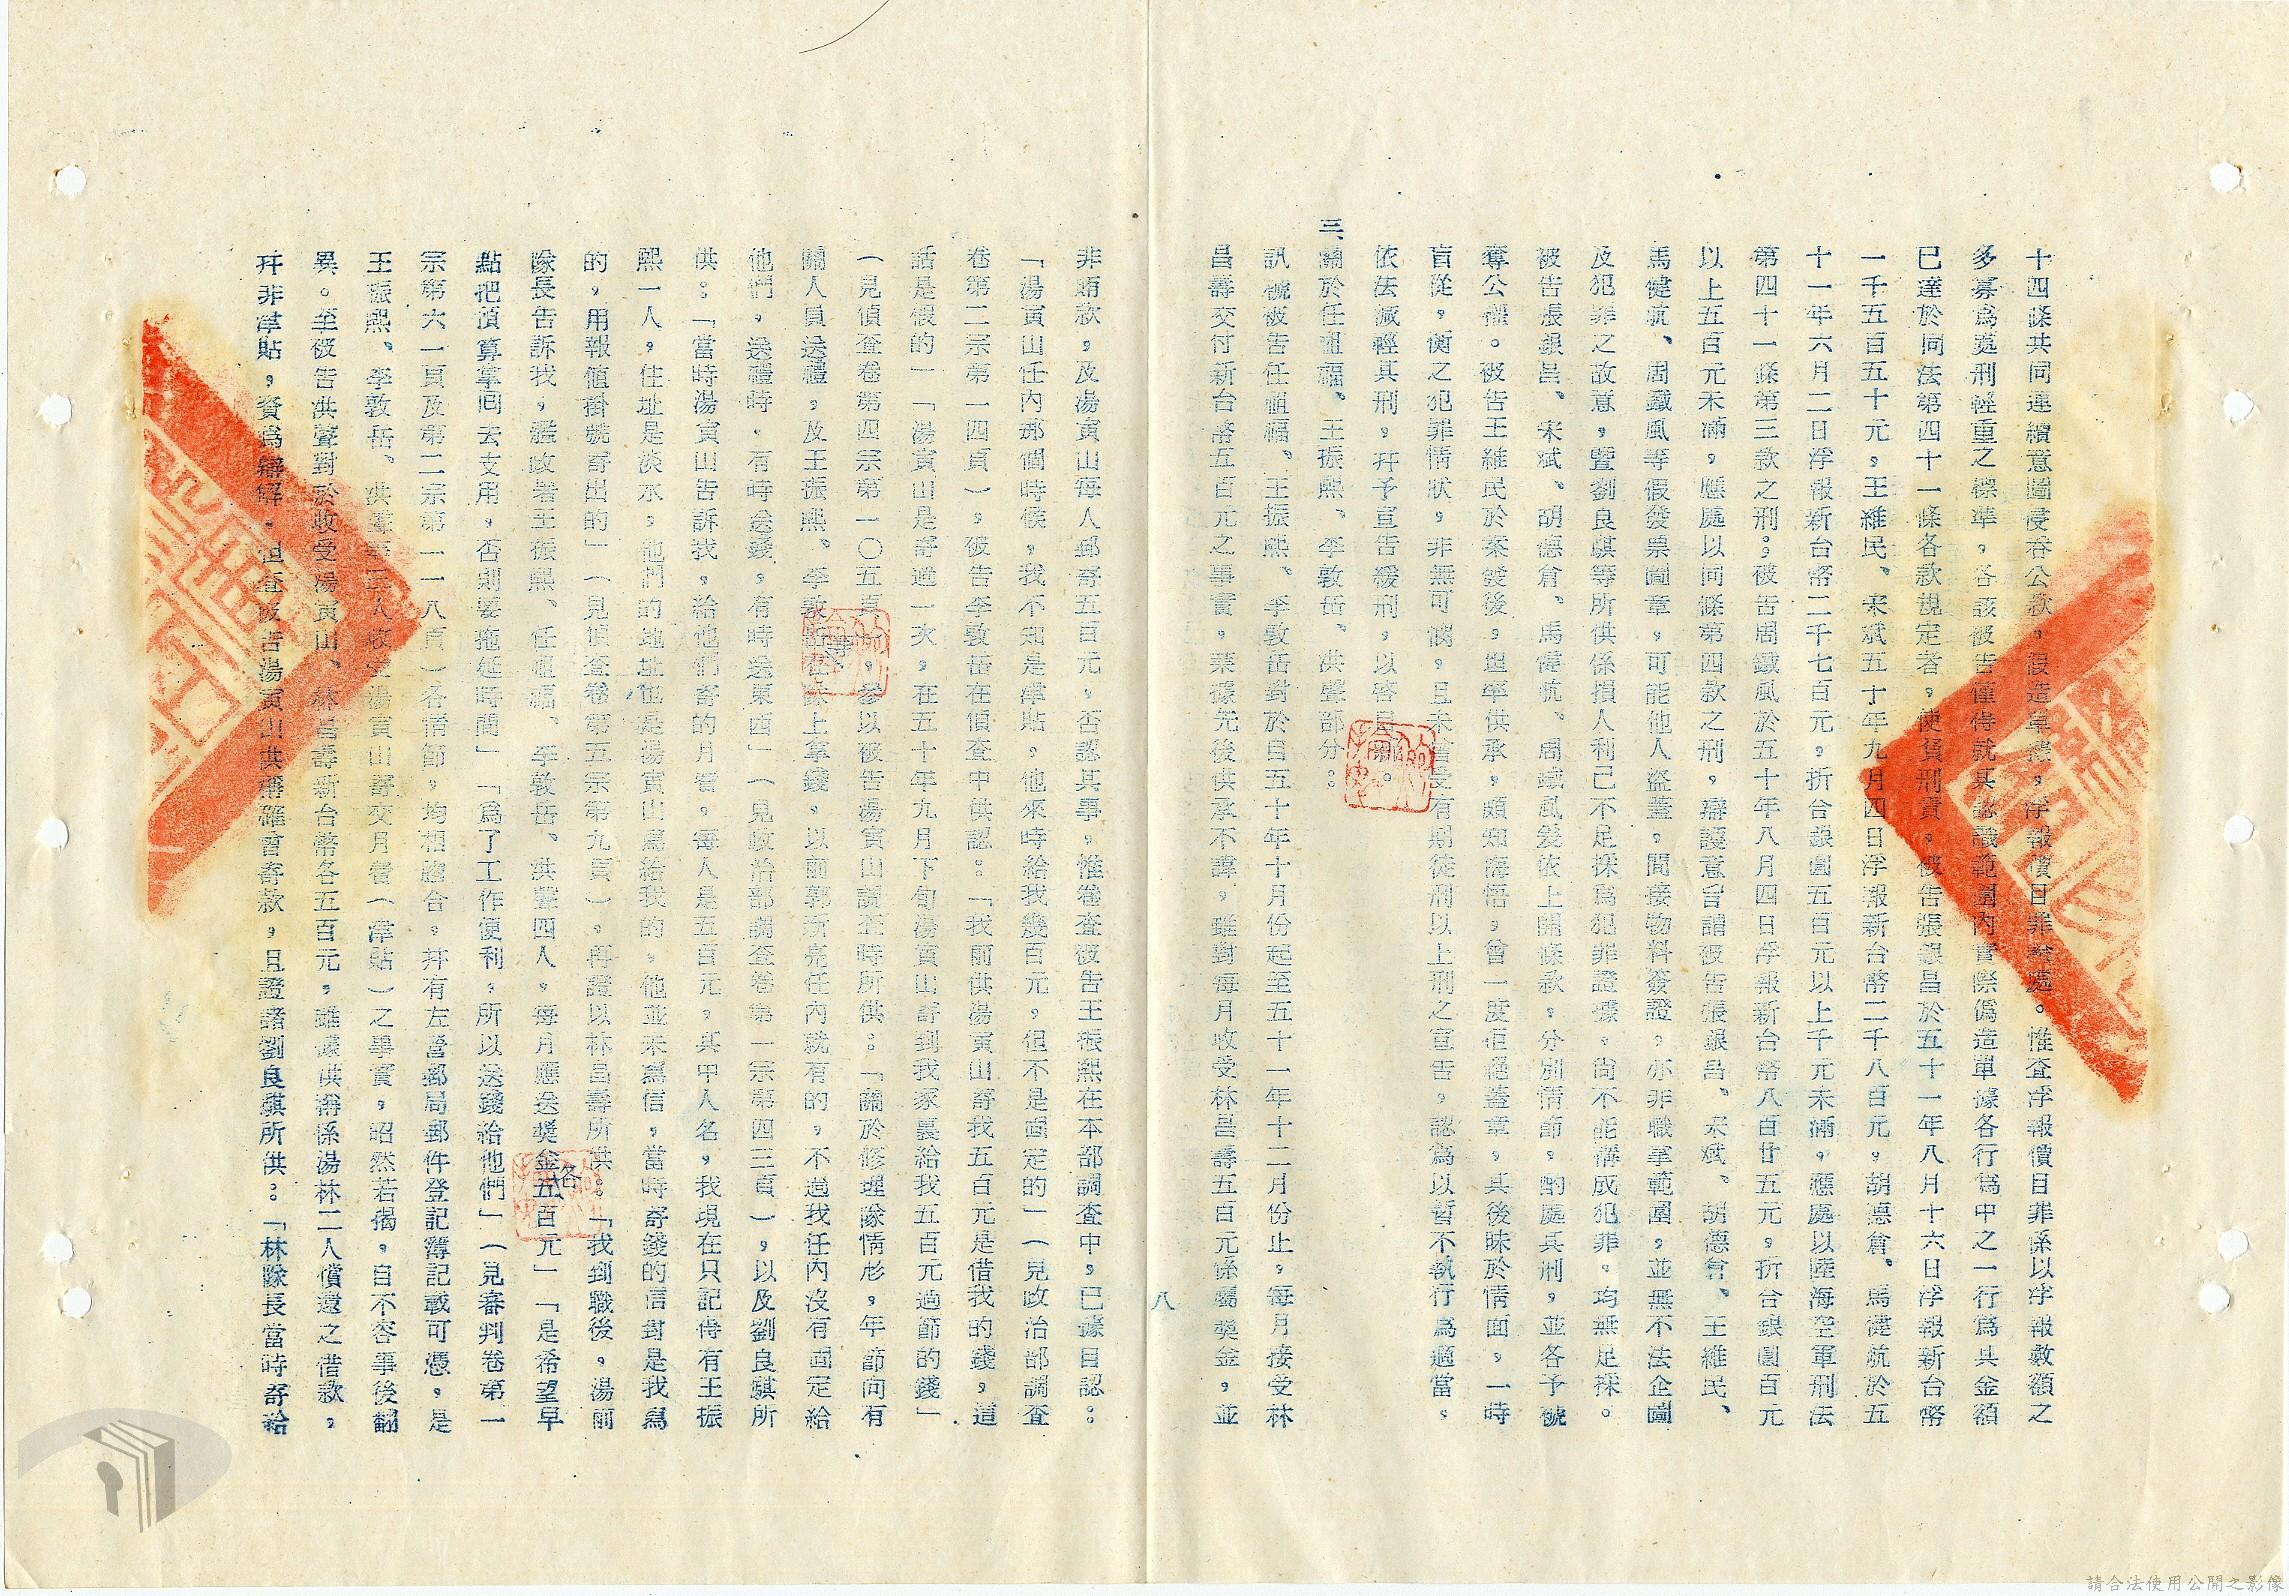 十四條共同連續意圖侵吞公款，假造單據，浮報價目罪論處。惟查浮報價目罪係以浮報數額之
多寡為處刑輕重之標準，各該被告僅得就其認識範圍內實際偽造單據各行為中之一行為其金額
已達於同法第四十一條各款規定者，使負刑責，被告張銀昌於五十一年八月十六日浮報新台幣
一千五百五十元，王維民、宋斌五十年九月四日浮報新台幣二千八百元，胡德倉、馬健航於五
十一年六月二日浮報新台幣二千七百元，折台銀圓五百元以上千元未滿，應處以陸海空軍刑法
第四十一條第三款之刑。被告周鐵風於五十年八月四日浮報新台幣八百廿五元，折台銀圓百元
以上五百元未滿，應處以同條第四款之刑，辯護意旨謂被告張銀昌、宋斌、胡德倉、王維民、
馬健航、周鐵風等假發票圖章，可能他人盜蓋，間接物料簽證，亦非職掌範圍，並無不法企圖
及犯罪之故意，暨劉良騏等所供係損人利己不足採為犯罪證據，尚不能構成犯罪，均無足採。
被告張銀昌、宋斌、胡德倉、馬健航、周鐵風爰依上開條款，分別情節，酌處其刑，並各予褫
奪公權。被告王維民於案發後，坦率供承，頗知悔悟，曾一度拒絕蓋章，其後昧於情面，一時
盲從，衡之犯罪情狀，非無可憫，且未曾受有期徒刑以上刑之宣告，認為以暫不執行為適當，
依法減輕其刑，并予宣告緩刑，以啓自新。
三、關於任祖福、王振熙、李敦岳、洪聲部分：
訊據被告任祖福、王振熙、李敦岳對於自五十年十月份起至五十一年十二月份止，每月接受林
昌壽交付新台幣五百元之事實，業據先後供承不諱，雖對每月收受林昌壽五百元係屬獎金，並
八
非賄款，及湯寅山每人郵寄五百元，否認其事，惟卷查被告王振熙在本部調查中，已據自認：
「湯寅山任內那個時候，我不知是津貼，他來時給我幾百元，但不是固定的」（見政治部調查
卷第二宗第一四頁），被告李敦岳在偵查中供認：「我前供湯寅山寄我五百元是借我的錢，這
話是假的」「湯寅山是寄過一次，在五十年九月下旬湯寅山寄到我家裏給我五百元過節的錢」
（見偵查卷第四宗第一〇五頁），參以被告湯寅山調查時所供：「關於修理隊情形，年節向有
關人員送禮，及王振熙、李敦岳在隊上拿錢，以前郭新亮任內就有的，不過我任內沒有固定給
他們，送禮時，有時送錢，有時送東西」（見政治部調查卷第一宗第四三頁），以及劉良騏所
供：「當時湯寅山告訴我，給他們寄的月費，每人是五百元，其中人名，我現在只記得有王振
熙一人，住址是淡水，他們的地址也是湯寅山寫給我的，他並未寫信，當時寄錢的信封是我寫
的，用報值掛號寄出的」（見偵查卷第五宗第九頁），再證以林昌壽所供：「我到職後，湯前
隊長告訴我，艦政署王振熙、任祖福、李敦岳、洪聲四人，每月應送獎金各五百元」「是希望早
點把預算拿回去支用，否則要拖延時間」「為了工作便利，所以送錢給他們」（見審判卷第一
宗第六一頁及第二宗第一一八頁）各情節，均相脗合，并有左營郵局郵件登記簿記載可憑，是
王振熙、李敦岳、洪聲等三人收受湯寅山寄交月費（津貼）之事實，昭然若揭，自不容事後翻
異。至被告洪聲對於收受湯寅山、林昌壽新台幣各五百元，雖據供稱係湯林二人償還之借款，
并非津貼，資為辯解，但查被告湯寅山供稱確曾寄款，且證諸劉良騏所供：「林隊長當時寄給
請合法使用公開之影像